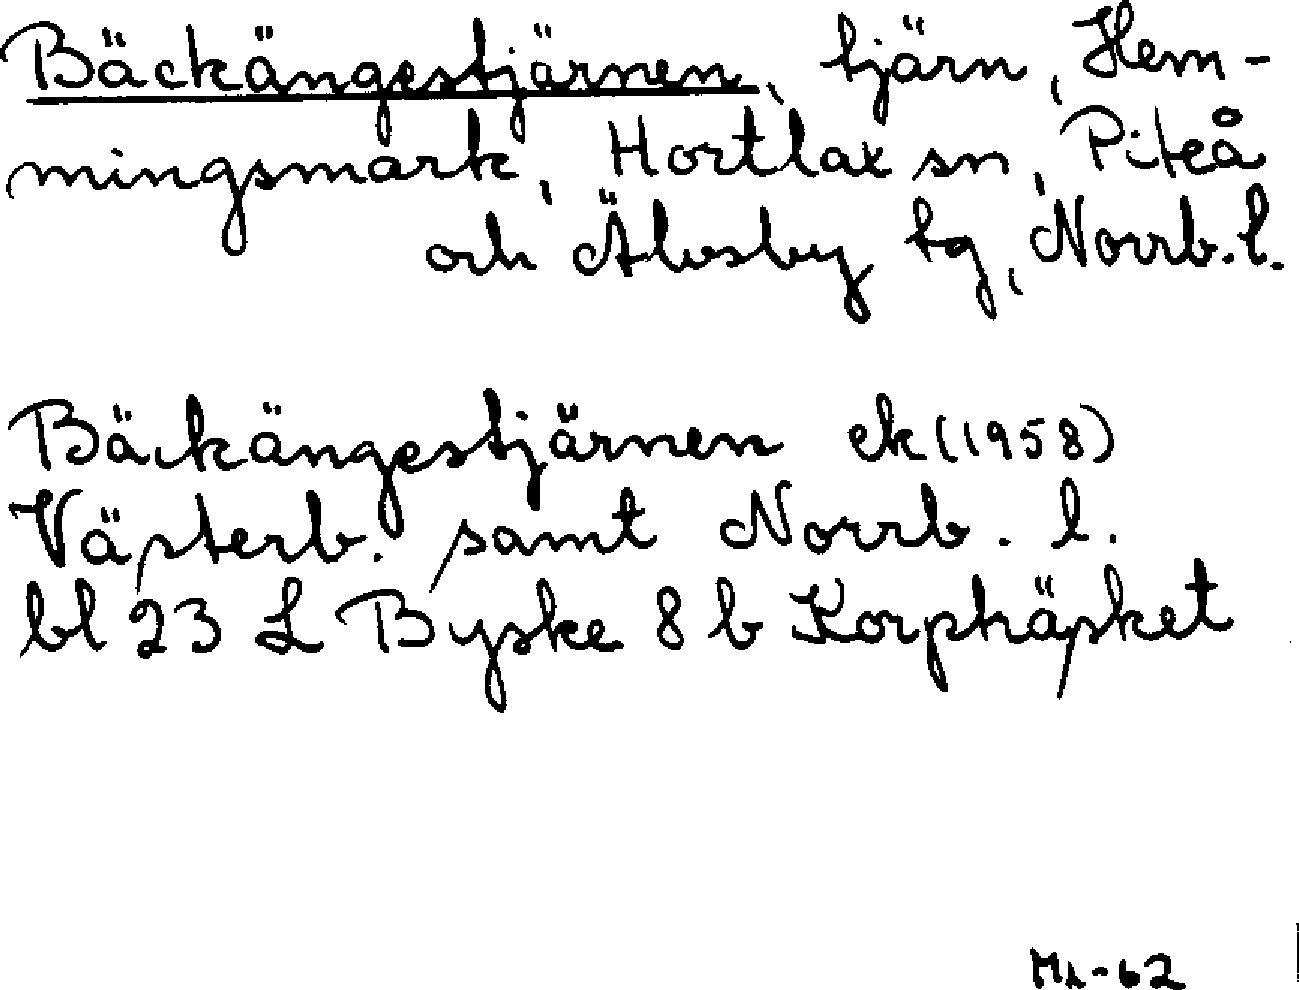 Bäckängestjärnen, tjärn, Hem-
mingsmark, Hortlax sn, Piteå
och Älvsby tg, Norrb. l.
Bäckängestjärnen ek (1958)
Västerb. samt Norrb. l.
bl 23 L Byske 8 b Korphäsket
-62